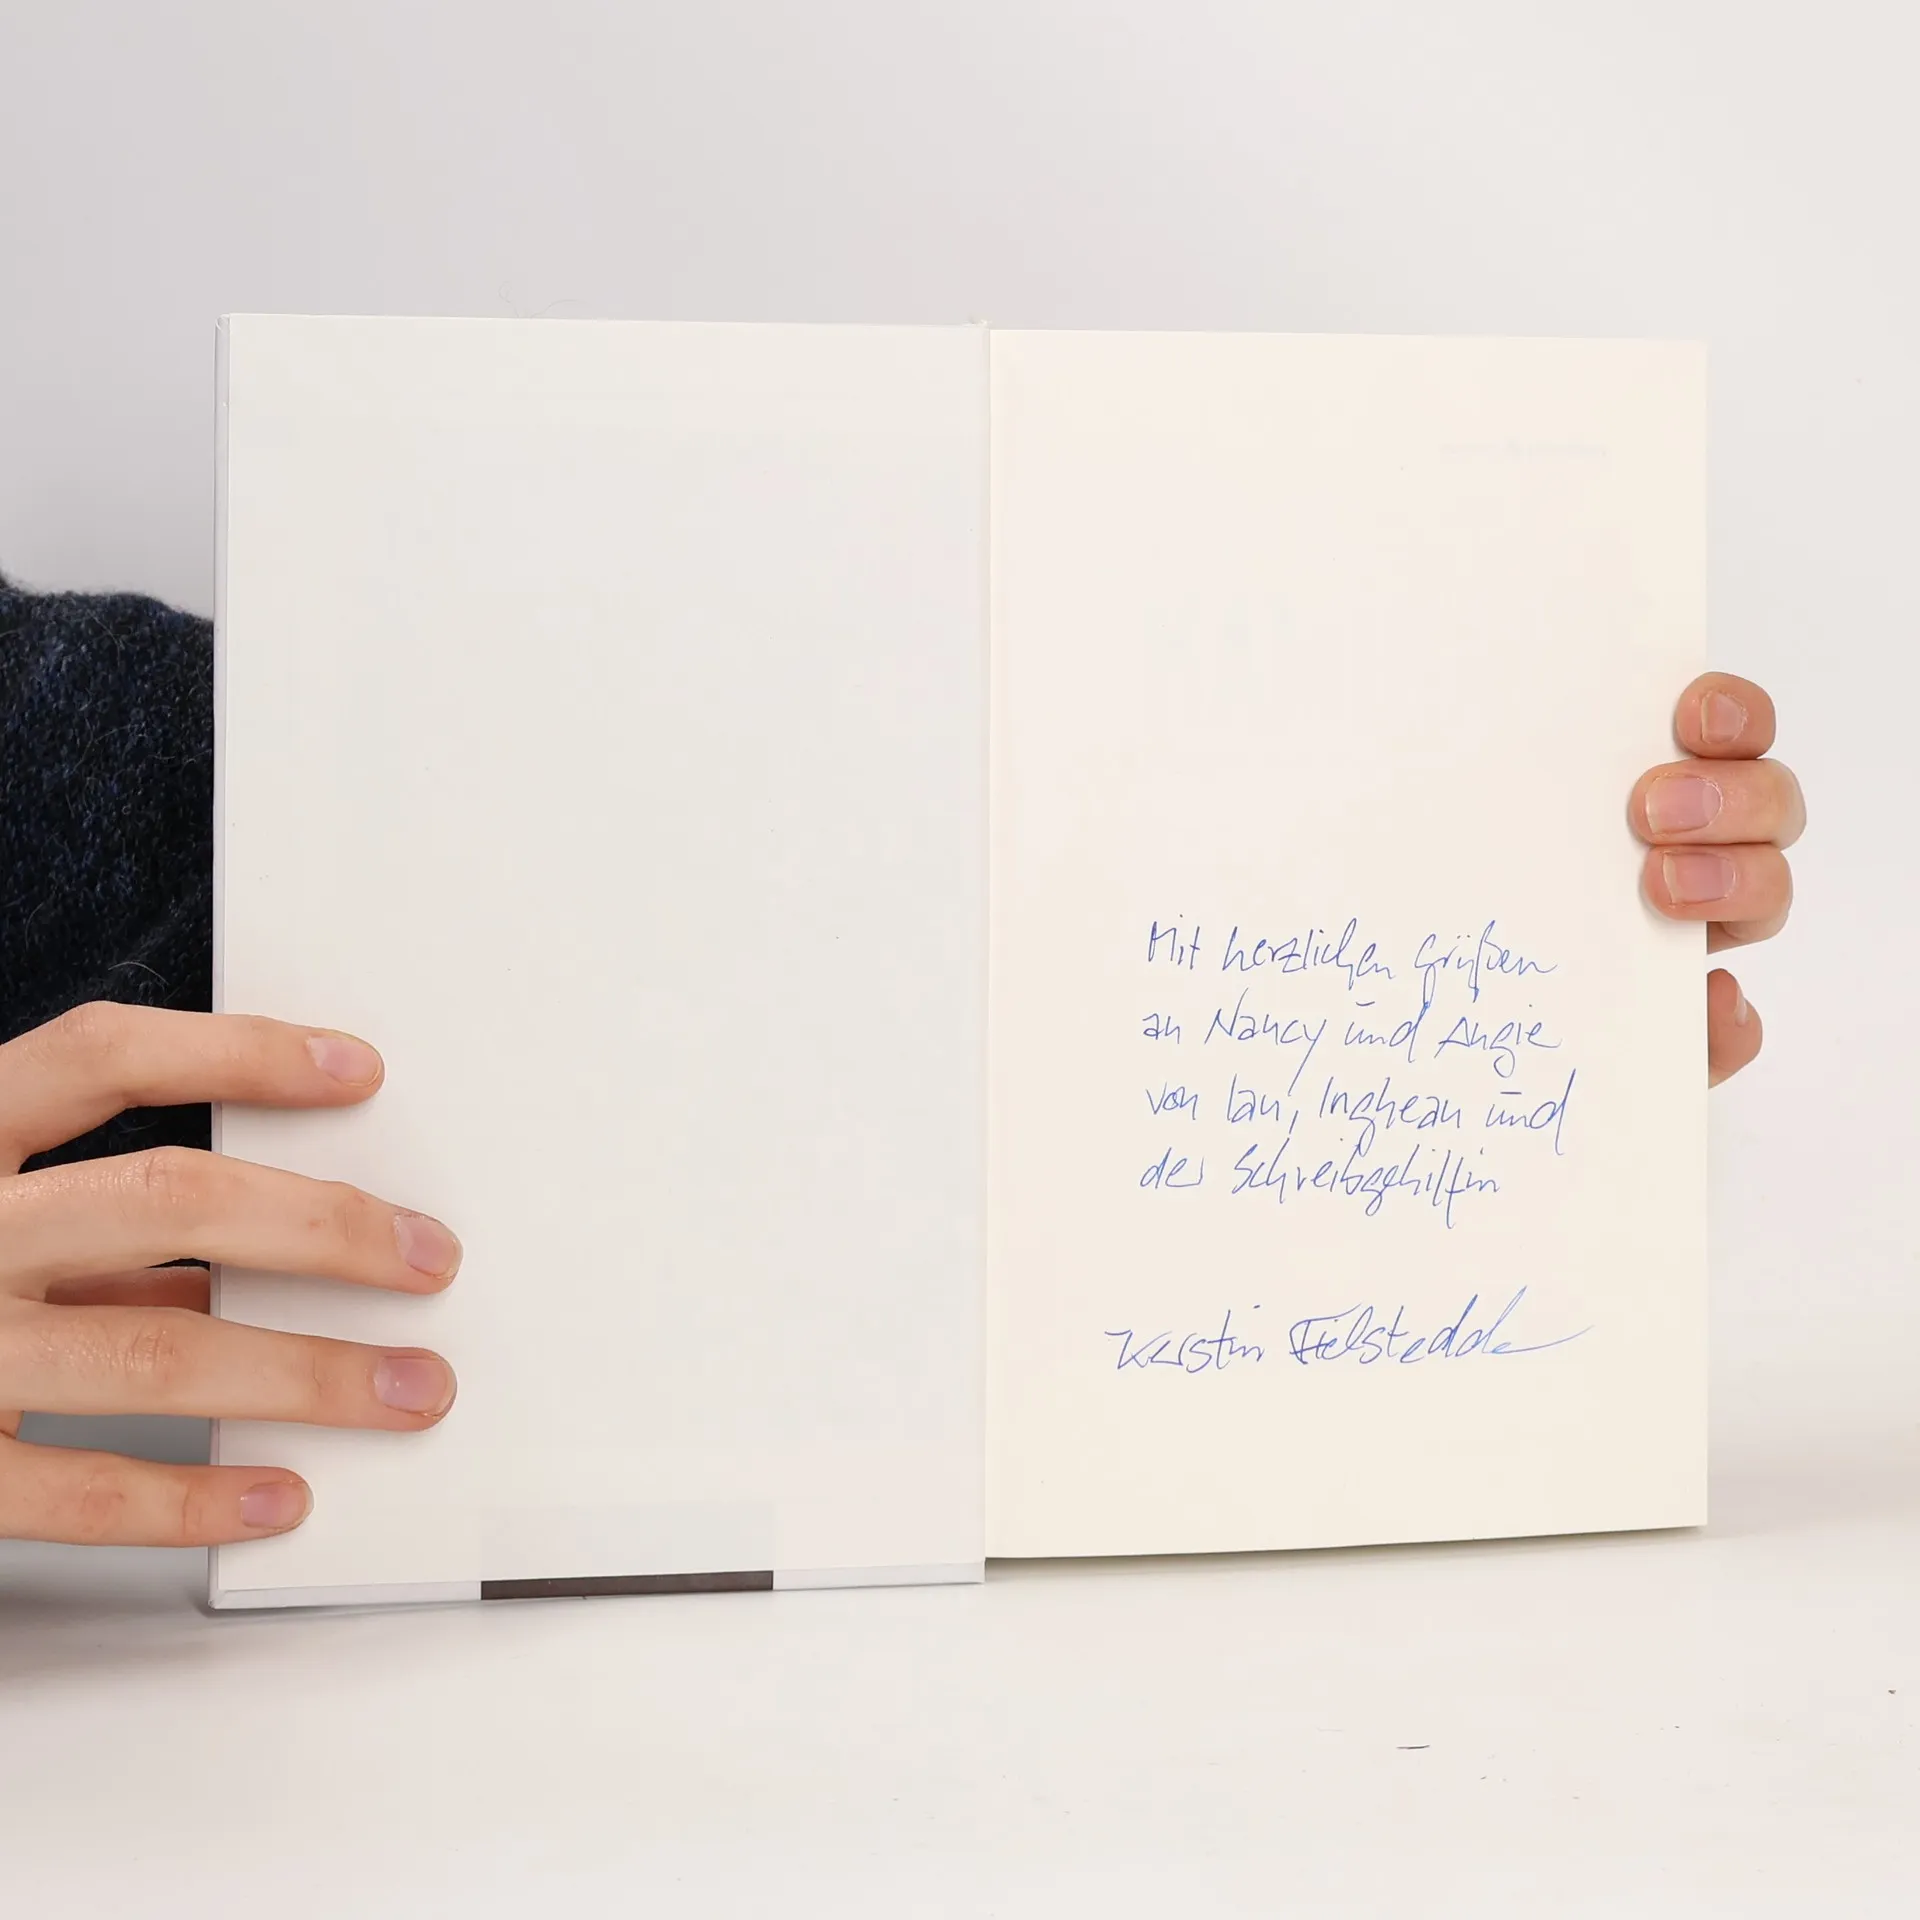 Mit herzlichen Grüßen
an Nancy und Angie
von Ian, Inghean und
der Schreibgehilfin
Kerstin Fielstedde